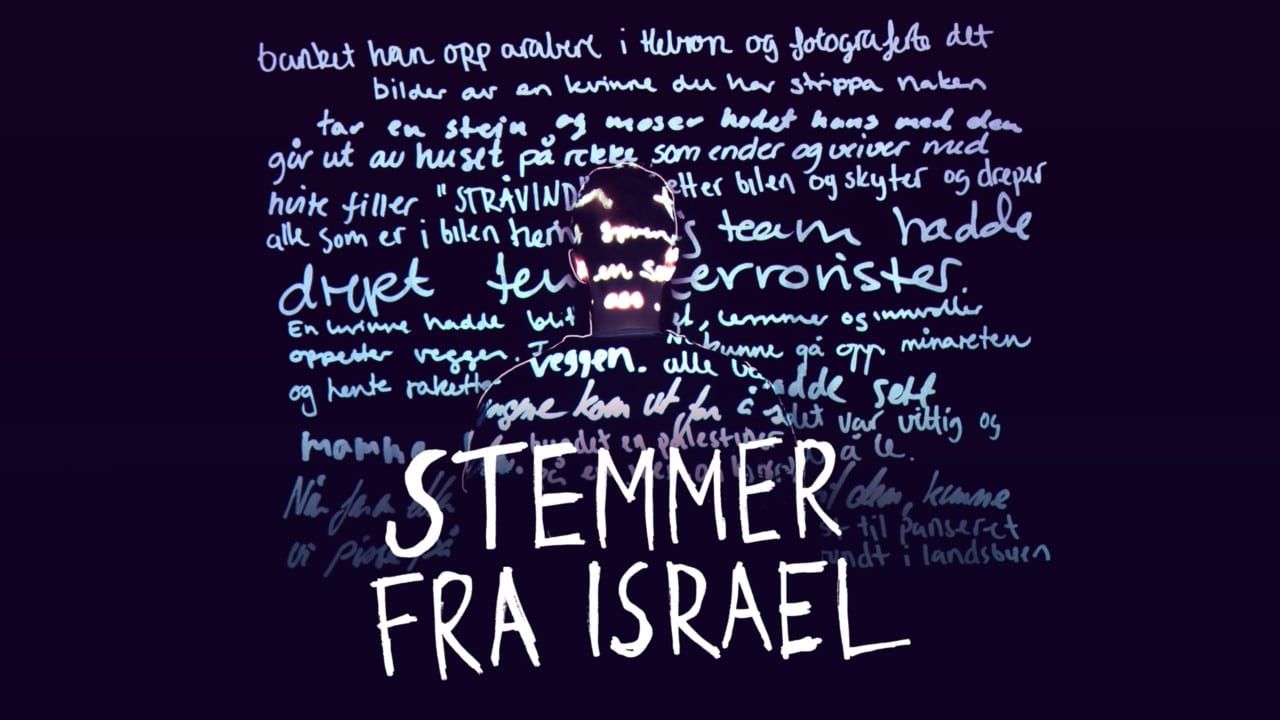 banket han opp arabere i Hebron og fotograferte det
bilder av en kvinne du har strippa naken
tar en stein og moser hodet hans med den
går ut av huset på rekke som ender og veiver med
hvite filler "STRÅVIND" etter bilen og skyter og dreper
alle som er i bilen team hadde
drept terrorister.
En kvinne hadde blitt lemmer og innvoller
oppetter veggen. kunne gå opp minareten
og hente veggen. alle hadde sett
kom ut for å det var vittig og
mamma en å le.
Når dem, kunne
til panseret
vi på rundt i landsbyen
STEMMER
FRA ISRAEL